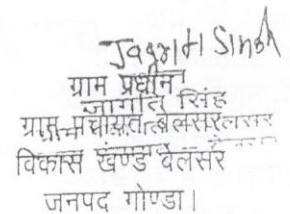 Jagriti Singh
ग्राम प्रधान
जागृति सिंह
ग्राम पंचायत बेलसर
विकास खण्ड बेलसर
जनपद गोण्डा।